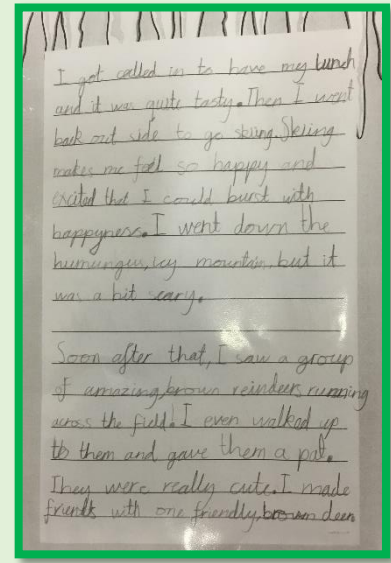 I got called in to have my lunch
and it was quite tasty. Then I went
back out side to go skiing. Skiing
makes me feel so happy and
excited that I could burst with
happyness. I went down the
humungus, icy mountain, but it
was a bit scary.
Soon after that, I saw a group
of amazing, brown reindeers running
across the field. I even walked up
to them and gave them a pat.
They were really cute. I made
friends with one friendly, brown deer.